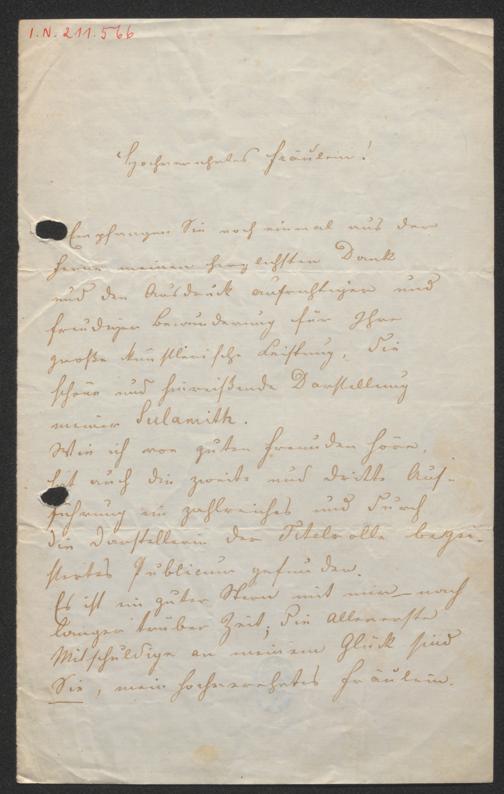 I.N. 211.566
Hochverehrtes Fräulein!
Empfangen Sie noch einmal aus der
Ferne meinen herzlichsten Dank
und den Ausdruck aufrichtiger und
freudiger Bewunderung für Ihre
große künstlerische Leistung, die
schöne und hinreißende Darstellung
meiner Sulamith.
Wie ich von guten Freunden höre,
hat auch die zweite und dritte Auf-
führung ein zahlreiches und durch
die Darstellerin der Titelrolle begei-
stertes Publicum gefunden.
Es ist ein guter Stern mit mir – nach
langer trüber Zeit; die allererste
Mitschuldige an meinem Glück sind
Sie, mein hochverehrtes Fräulein.